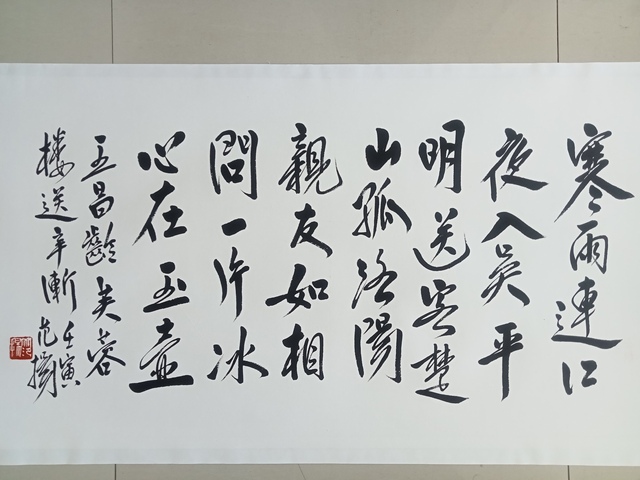 寒雨連江
夜入吳平
明送客楚
山孤洛陽
親友如相
問一片冰
心在玉壺
王昌齡芙蓉
樓送辛漸
壬寅